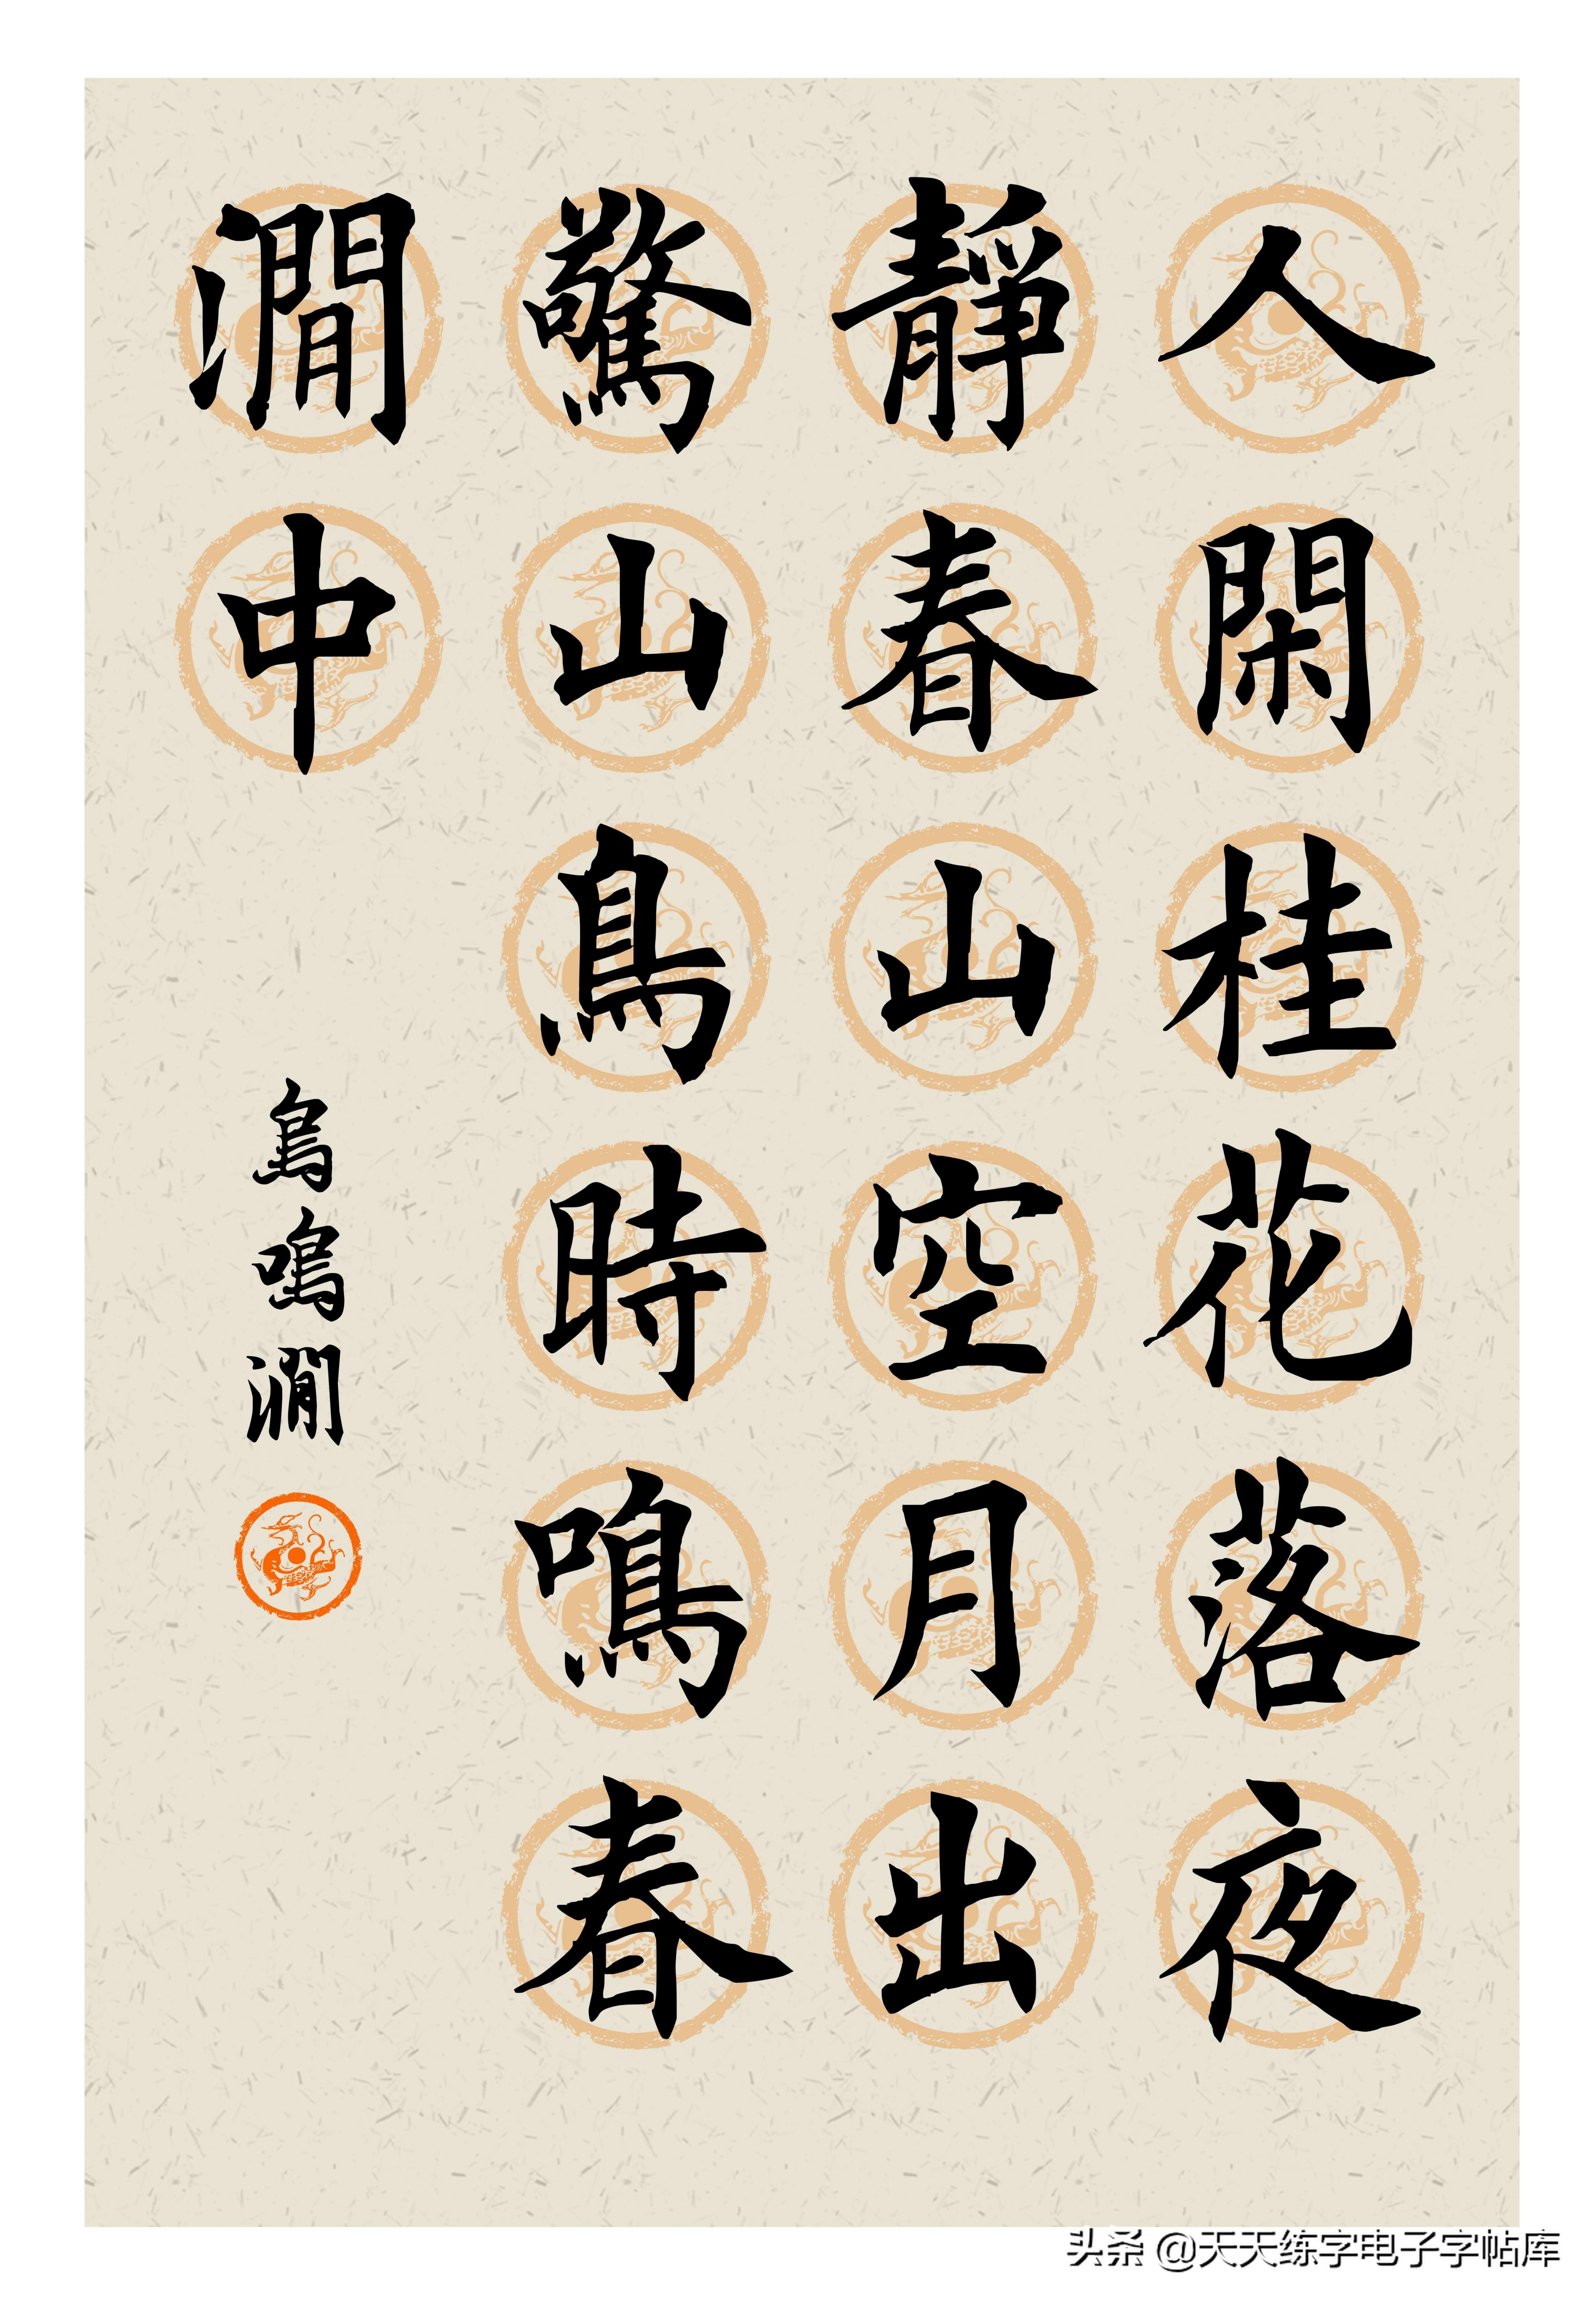 人閑桂花落夜
靜春山空月出
驚山鳥時鳴春
澗中
鳥鳴澗
头条 @天天练字电子字帖库